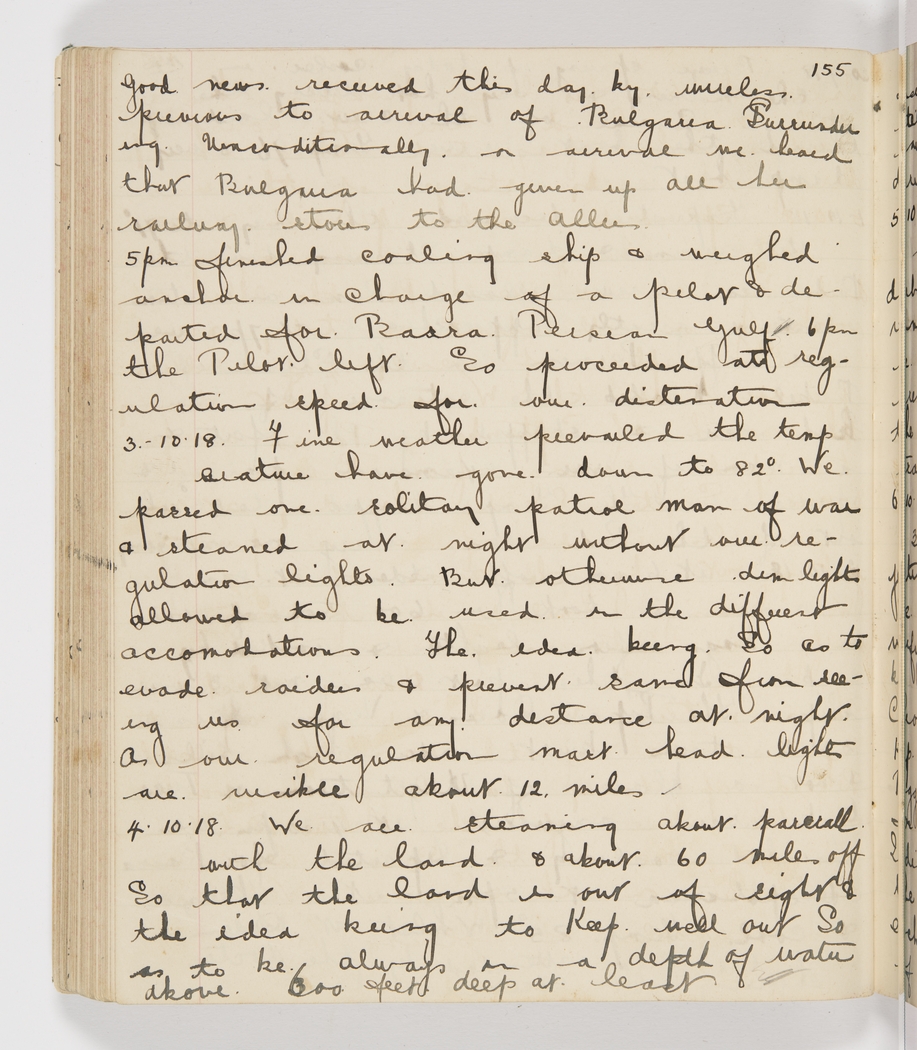 155
good news received this day by wireless.
previous to arrival of Bulgaria Surrender
ing Unconditionally. on arrival we heard
that Bulgaria had given up all her
railway stores to the Allies.
5pm finished coaling ship & weighed
anchor in charge of a pilot & de-
parted for Basra. Persian Gulf. 6pm
the Pilot left. So proceeded at reg-
ulation speed for our distination
3.-10.18. Fine weather prevailed the temp
erature have gone down to 82°. We
passed one solitary patrol man of war
& steamed at night without our re-
gulation lights. But otherwise dim lights
allowed to be used in the different
accomodations. The idea being So as to
evade raiders & prevent same from see-
ing us for any distance at night.
As our regulation mast head lights
are visible about 12. miles
4.10.18. We are steaming about parrall
with the land. & about 60 miles off
So that the land is out of sight &
the idea being to Keep well out So
as to be always in a depth of water
above 600 feet deep at least